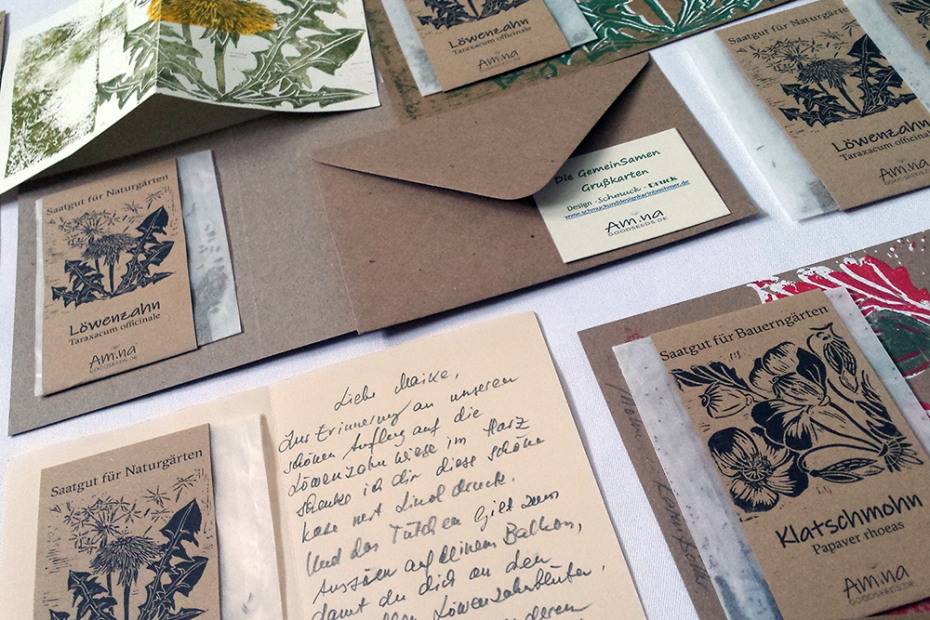 Löwenzahn
Taraxacum officinale
Am.na
Saatgut für Naturgärten
Löwenzahn
Taraxacum officinale
Am.na
GOODSEEDS.DE
Die GemeinSamen
Grußkarten
Design · Schmuck ·
www.schmuckunddesignkarinbuchner.de
Am.na
GOODSEEDS.DE
Saatgut für Naturgärten
Löwenzahn
Taraxacum officinale
Am.na
GOODSEEDS.DE
Liebe Maike,
Zur Erinnerung an unseren
schönen Ausflug auf die
Löwenzahnwiese im Harz
schenke ich dir diese schöne
Karte mit Linoldruck.
Und das Tütchen gilt zum
Aussäen auf deinem Balkon,
damit du dich an den
Löwenzahnblüten
Saatgut für Bauerngärten
Klatschmohn
Papaver rhoeas
Am.na
GOODSEEDS.DE
Saatgut für Naturgärten